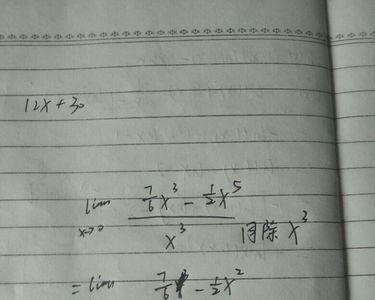 12x+30
lim x→0 (7/6 x³ - 1/2 x⁵) / x³ 同除 x³
= lim 7/6 - 1/2 x²